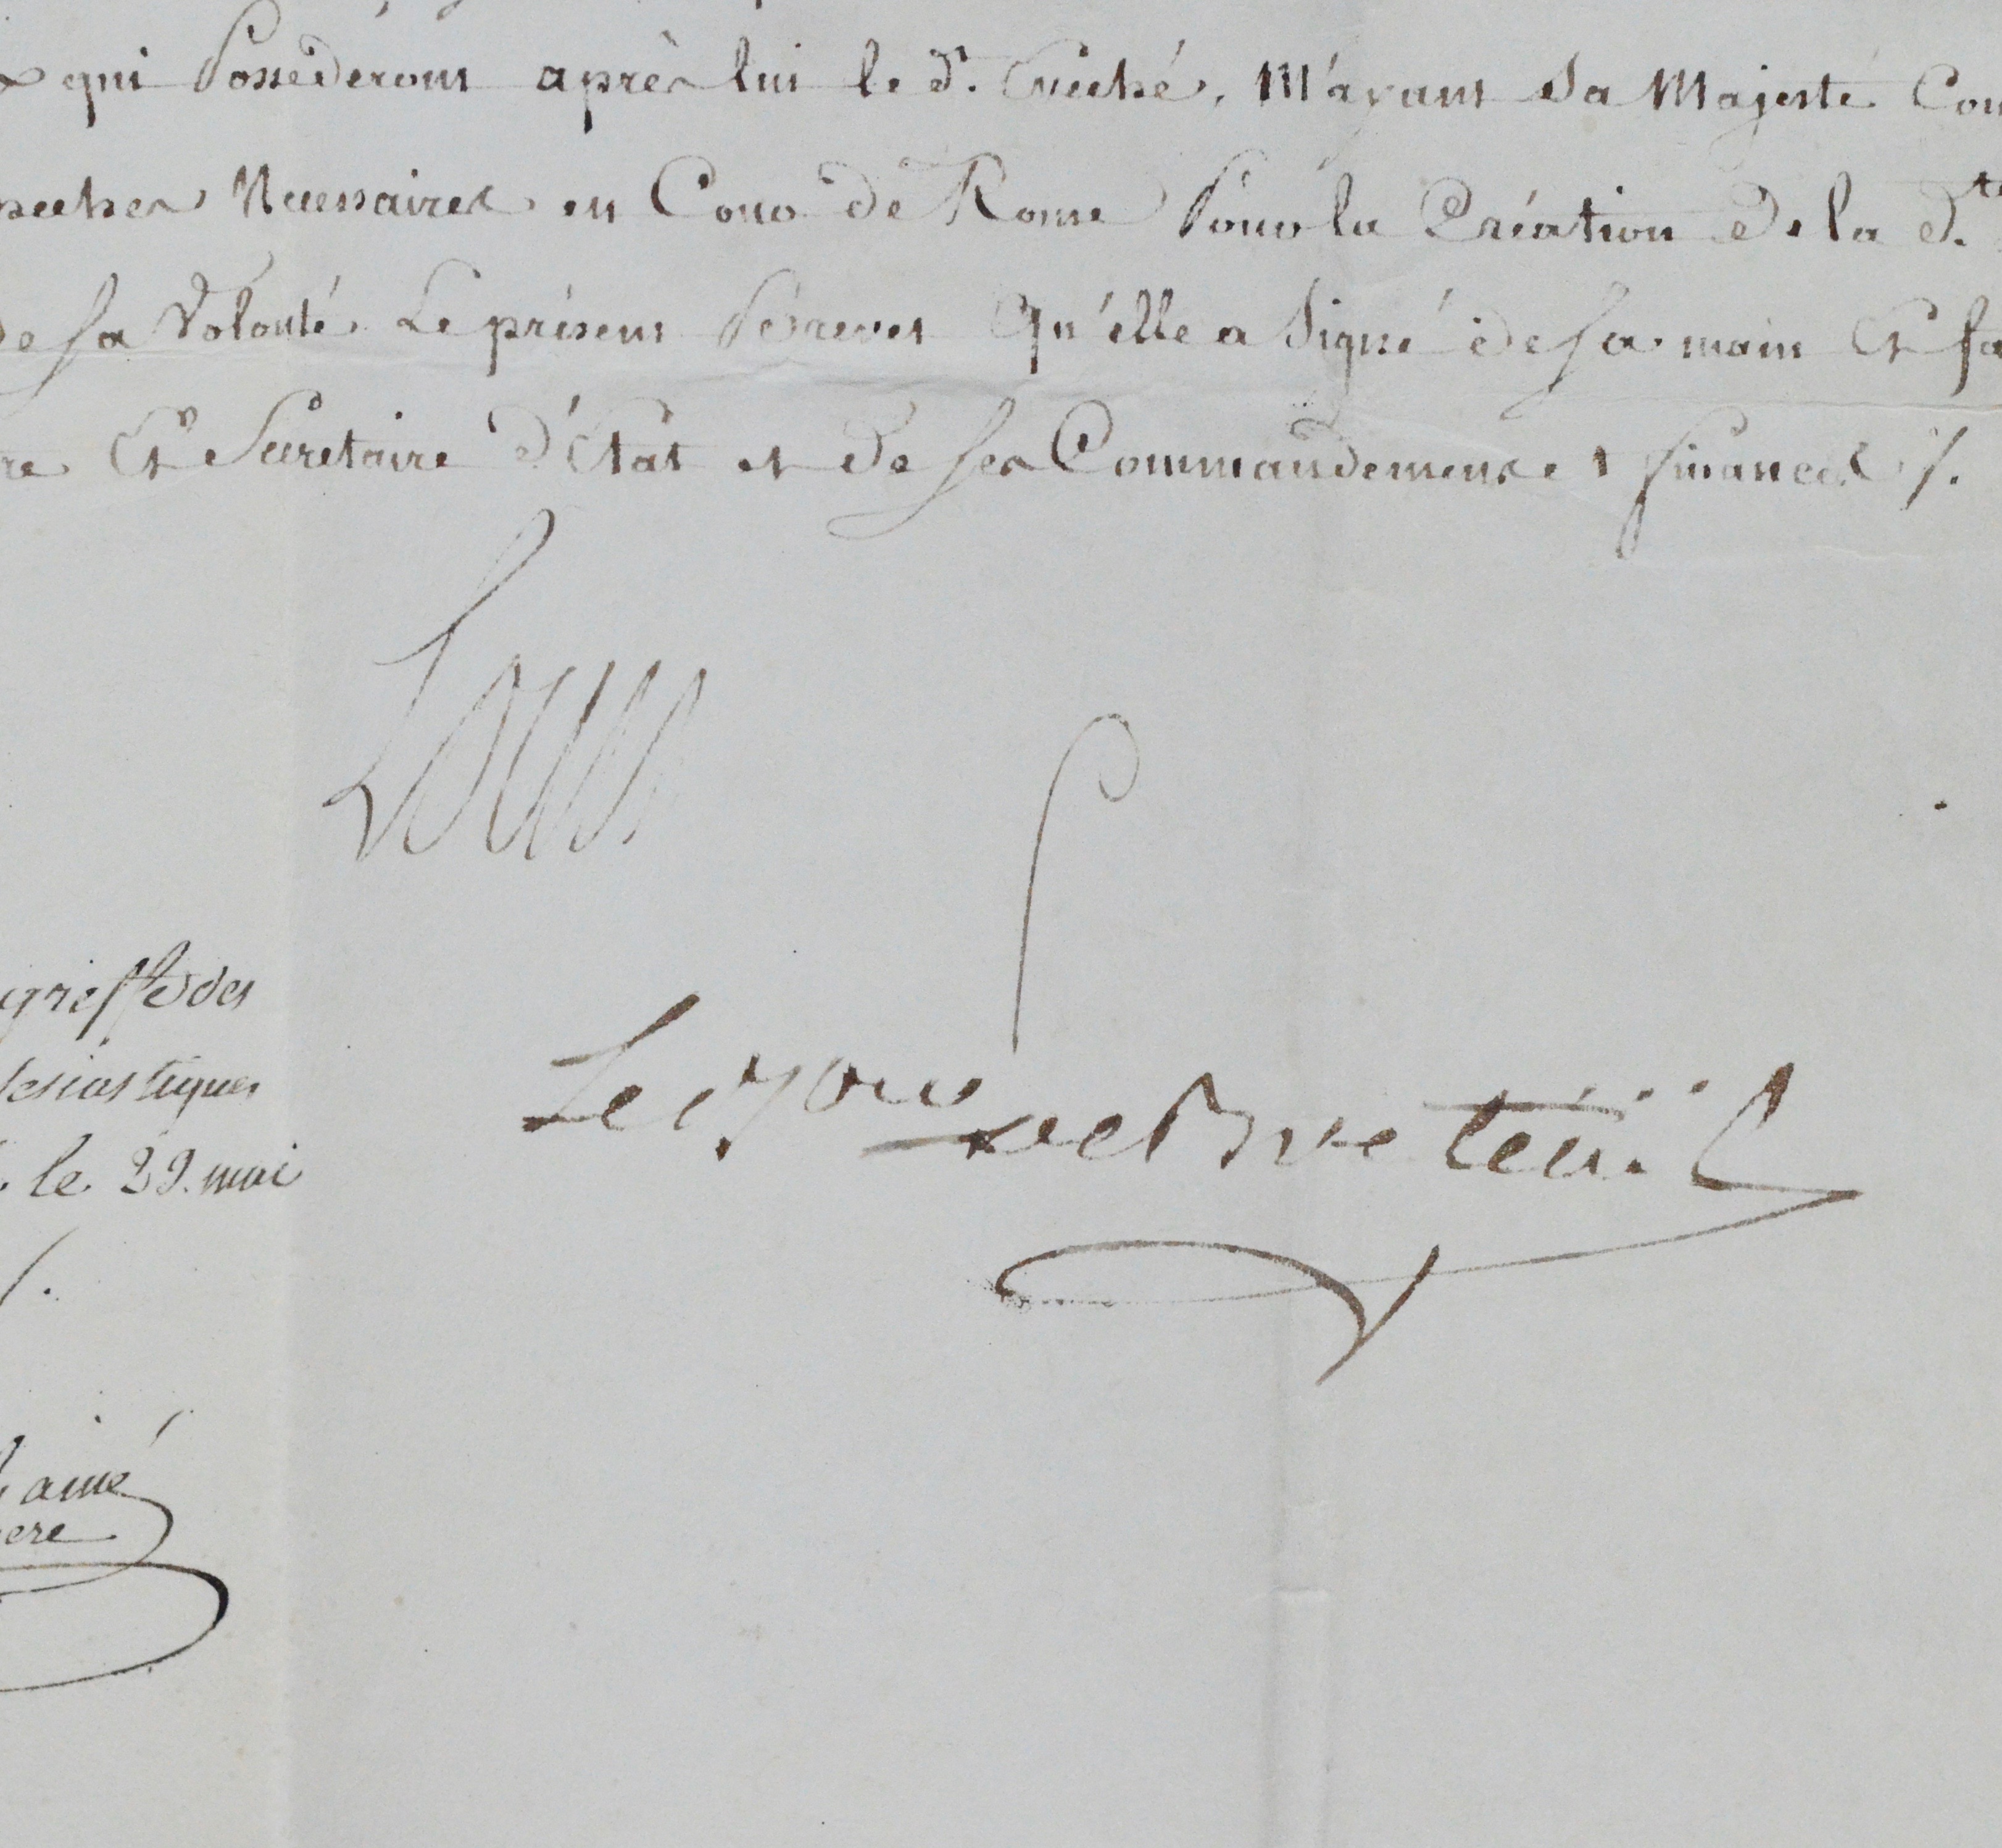 qui Possederont après lui le d. Evêché, M'ayant Sa Majesté
Necessaires en Cour de Rome Pour la Création de la d.te
de sa Volonté Le présent Brevet Qu'elle a Signé de sa main Et
Et Secretaire d'Etat et de ses Commandemens et finances /.
Louis
Le Bon de Breteüil
greffe des
le 29. mai
/.
ainé